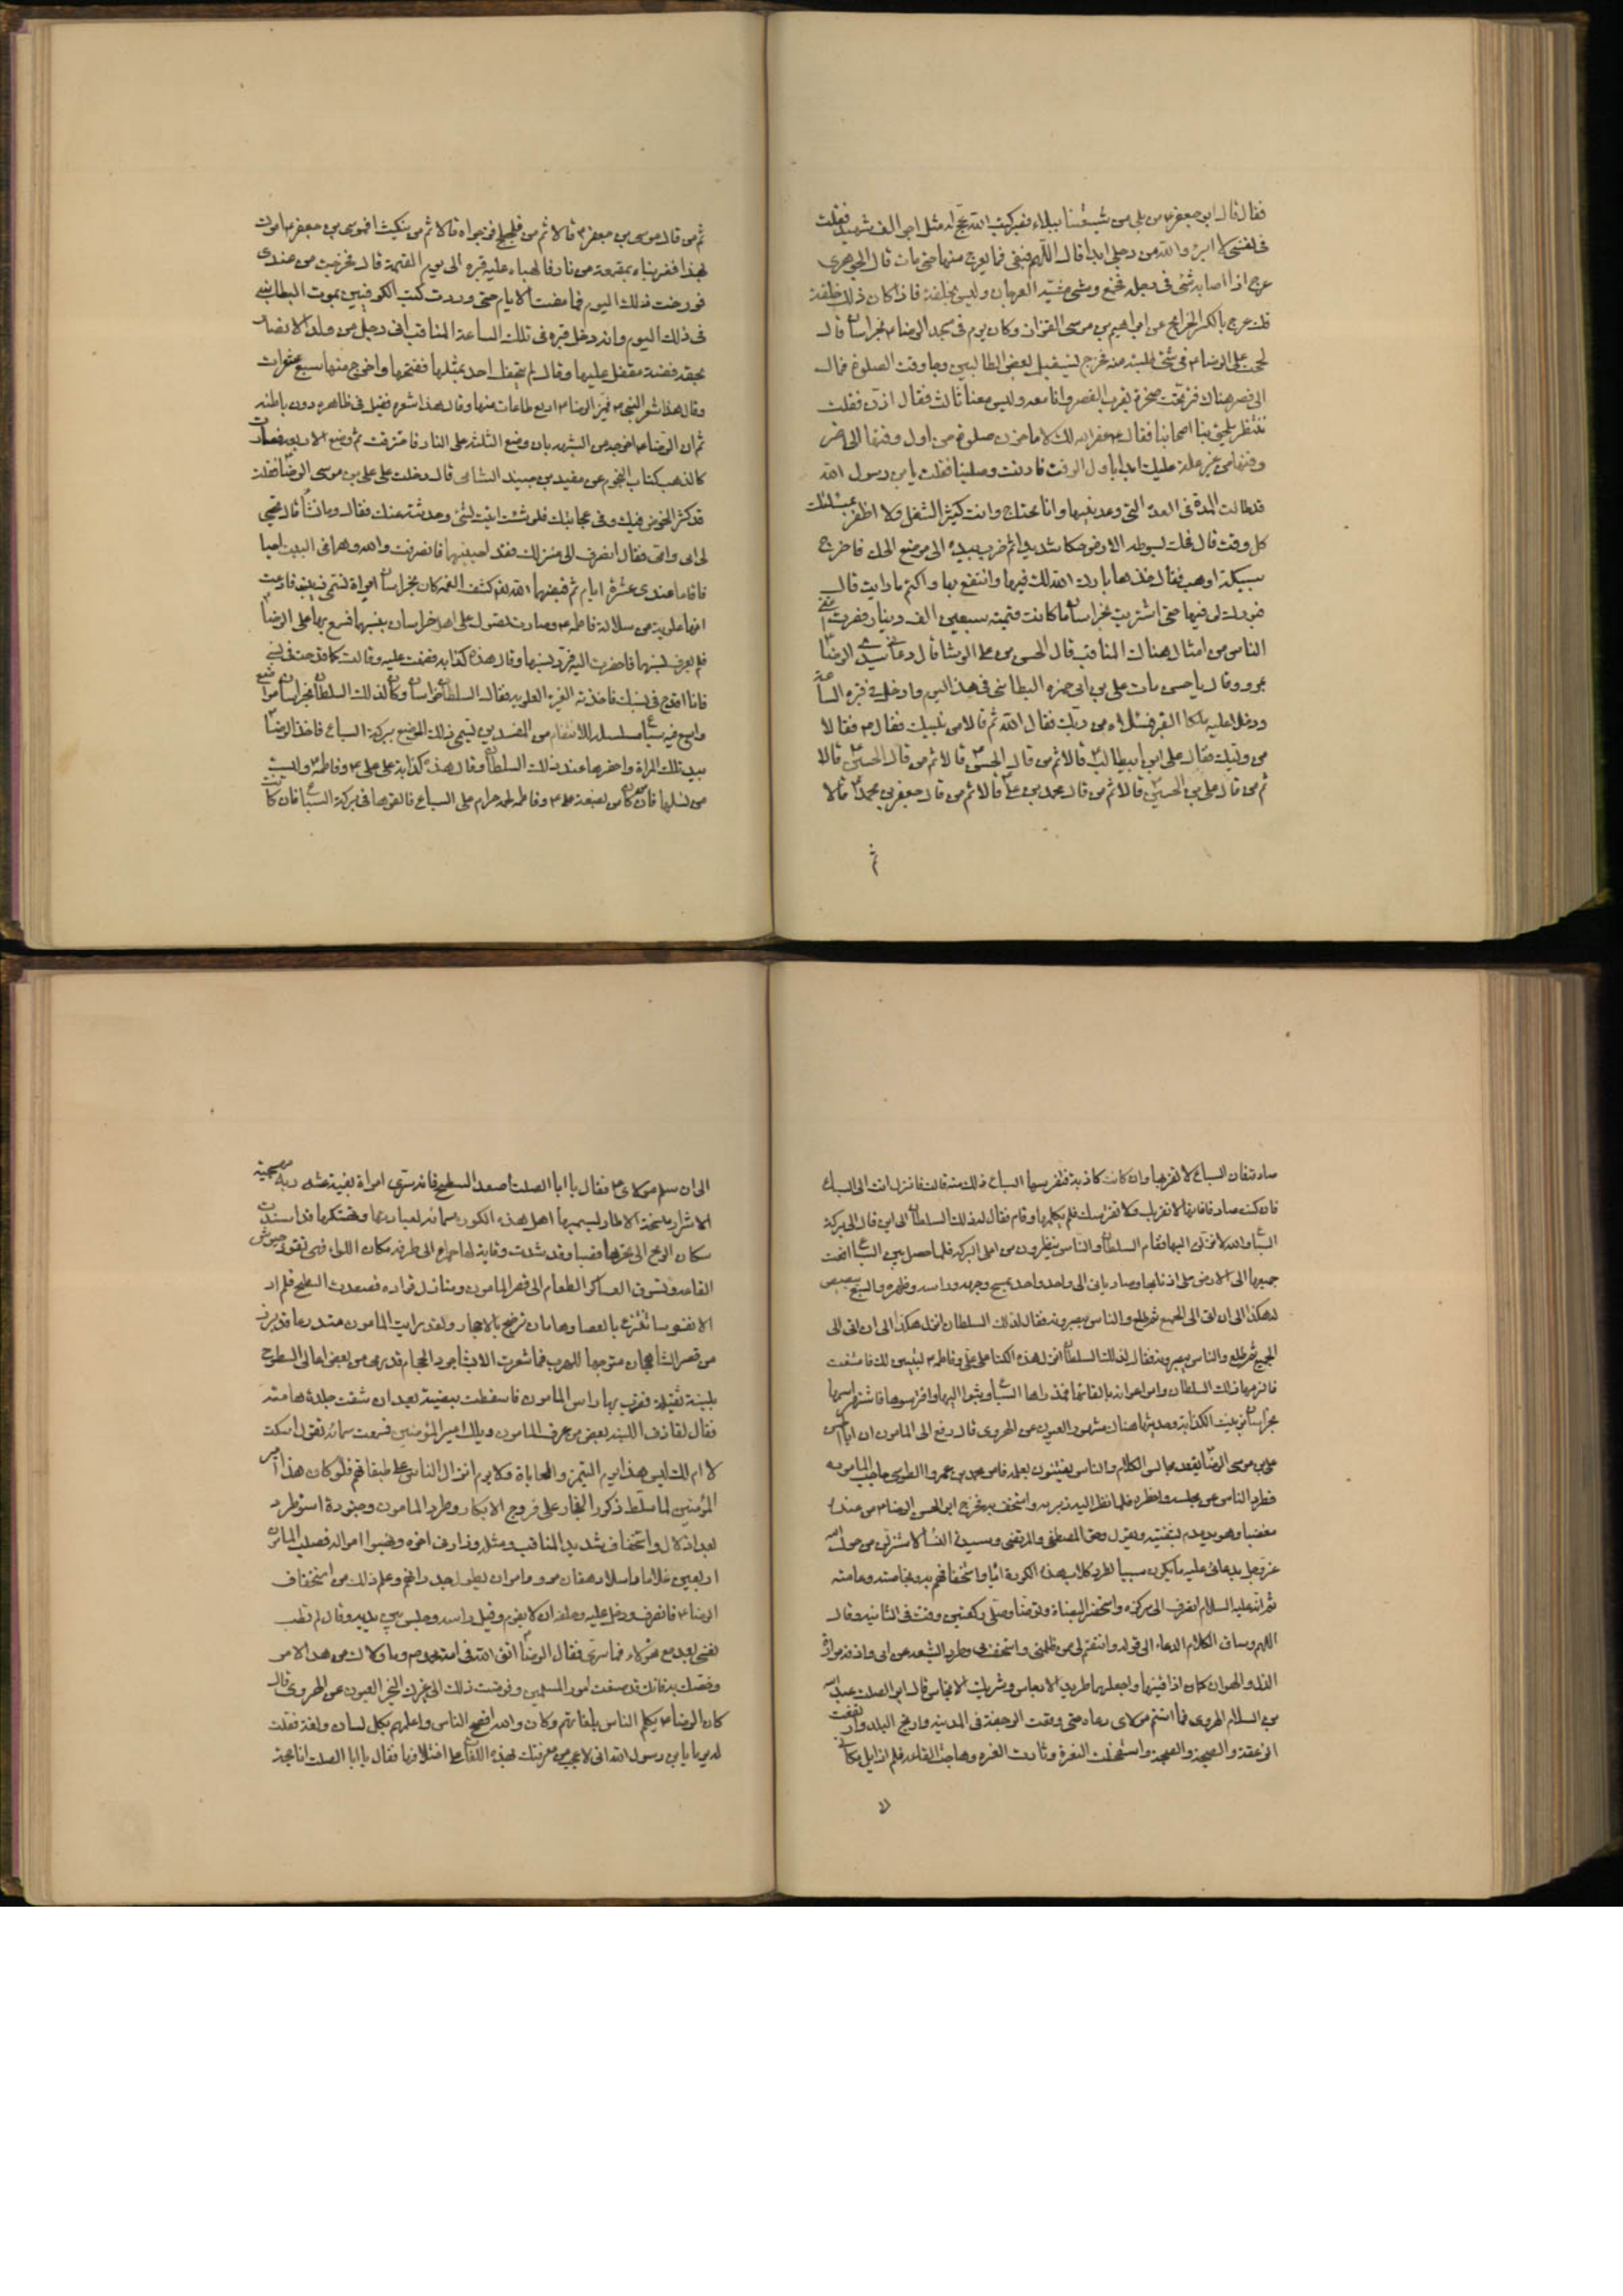 فقال قال ابو جعفر ع من بلى من شيعتنا ببلاء فصبر كتب الله عج له مثل اجر الف شهيد فقلت
في نفسي لا ابرء والله من رجلي ابدا قال اللهم فبقى فما يعرج منها حتى مات قال الجوهري
عرج اذا اصابه شئ في رجله فخمع ومشى مشية العرجان وليس بخلقة فاذا كان ذلك خلقة
قلت عرج بالكسر الخرايج عن ابراهيم بن موسى القزاز وكان يوم في مسجد الرضا ع بخراسان قال
الححت على الرضا ع في شئ طلبته منه فخرج ليستقبل بعض الطالبيين وجا وقت الصلوة فمال
الى قصر هناك فنزل تحت صخرة بقرب القصر وانا معه وليس معنا ثالث فقال اذن فقلت
ننتظر يلحق بنا اصحابنا فقال غفر الله لك لا تاخرن صلوة من اول وقتها الى اخر
وقتها من غير علة عليك ابدا باول الوقت فاذنت وصلينا فقلت يا بن رسول الله
قد طالت المدة في العدة التي وعدتنيها وانا محتاج وانت كثير الشغل ولا اظفر بمسئلتك
كل وقت قال فحك بسوطه الارض حكا شديدا ثم ضرب بيده الى موضع الحك فاخرج
سبيكة ذهب فقال خذها بارك الله لك فيها وانتفع بها واكتم ما رايت قال
فبورك لي فيها حتى اشتريت بخراسان ما كانت قيمته سبعين الف دينار فصرت اغنى
الناس من امثالي هناك المناقب قال الحسن بن علي الوشا قال دعاني سيدي الرضا ع
بمرو وقال يا حسن مات علي بن ابي حمزه البطائني في هذا اليوم وادخل في قبره الساعة
ودخلا عليه ملكا القبر فسئلاه من ربك فقال الله ثم قالا من نبيك فقال محمد فقالا
من وليك فقال علي بن ابيطالب ع قالا ثم من قال الحسن ع قالا ثم من قال الحسين ع قالا
ثم من قال علي بن الحسين ع قالا ثم من قال محمد بن علي ع قالا ثم من قال جعفر بن محمد ع قالا
ثم
ثم من قال موسى بن جعفر ع قالا ثم من فلجلج فزجراه وقالا ثم من فسكت افموسى بن جعفر ع امرك
بهذا فضرباه بمقرعة من نار فالهباه عليه قبره الى يوم القيمة قال فخرجت من عند سيدي
فورخت ذلك اليوم فما مضت الايام حتى وردت كتب الكوفيين بموت البطائني
في ذلك اليوم وانه دخل قبره في تلك الساعة المناقب اتى رجل من ولد الانصار
بحقة فضة مقفل عليها وقال لم يتحفك احد بمثلها ففتحها واخرج منها سبع شعرات
وقال هذا شعر النبي ص فميز الرضا ع اربع طاقات منها وقال هذا شعره فقبل في ظاهره دون باطنه
ثم ان الرضا ع اخرجه من الشبهة بان وضع الثلثة على النار فاحترقت ثم وضع الاربعة فصارت
كالذهب كتاب النجوم عن معبد بن جنيد الشامي قال دخلت على علي بن موسى الرضا ع فقلت
قد كثر الخوض فيك وفي عجائبك فلو شئت اتيت بشئ وحدثته عنك فقال وما تشأ قال تحيي
لي ابي وامي فقال انصرف الى منزلك فقد احييتهما فانصرفت والله وهما في البيت احيا
فاقاما عندي عشرة ايام ثم قبضهما الله تعالى كشف الغمة كان بخراسان امراة تسمى زينب فادعت
انها علوية من سلالة فاطمة ع وصارت تصول على اهل خراسان بنسبها فسمع بها علي الرضا ع
فلم يعرف نسبها فاحضرت اليه فرد نسبها وقال هذه كذابة فسفهت عليه وقالت كما قدحت في نسبي
فانا اقدح في نسبك فاخذته الغيرة العلوية فقال لسلطان خراسان وكان لذلك السلطان بخراسان موضع
واسع فيه سباع مسلسلة للانتقام من المفسدين يسمى ذلك الموضع بركة السباع فاخذ الرضا ع
بيد تلك المراة واحضرها عند ذلك السلطان وقال هذه كذابة على علي ع وفاطمة ع وليست
من نسلهما فان من كان بضعة علي ع وفاطمة لحمه حرام على السباع فالقوها في بركة السباع فان كانت
صادقة فان السباع لا تقربها وان كانت كاذبة فتفرسها السباع ذلك منه قالت فانزل انت الى السباع
فان كنت صادقا فانها لا تقربك ولا تفترسك فلم يكلمها وقام فقال له ذلك السلطان الى اين قال الى بركة
السباع والله لانزلن اليها فقام السلطان والناس ينظرون من اعلى البركة فلما حصل بين السباع اقعت
جميعها الى الارض على اذنابها وصار ياتي الى واحد واحد يمسح وجهه وراسه وظهره والسبع يبصبص
له هكذا الى ان اتى الى الجميع ثم طلع والناس يبصرونه فقال لذلك السلطان انزل هكذا الى ان اتى الى
الجميع ثم طلع والناس يبصرونه فقال لذلك السلطان انزل هذه الكذابة على علي وفاطمة ع ليتبين لك فامتنعت
فالزمها ذلك السلطان وامر اعوانه بالقائها فمذ راها السباع وثبوا اليها وافترسوها فاشتهر اسمها
بخراسان بزينب الكذابة وحديثها هناك مشهور العيون عن الهروي قال رفع الى المامون ان ابا الحسن
علي بن موسى الرضا ع يعقد مجالس الكلام والناس يفتتنون بعلمه فامر محمد بن عمرو الطوسي حاجب المامون
فطرد الناس عن مجلسه واحضره فلما نظر اليه زبره واستخف به فخرج ابو الحسن الرضا ع من عنده
مغضبا وهو يدمدم بشفتيه ويقول وحق المصطفى والمرتضى وسيدة النسا لاستنزلن من حول الله
عز وجل بدعائي عليه ما يكون سببا لطرد كلاب هذه الكورة اياه واستخفافهم به وبخاصته وعامته
ثم انه عليه السلام انصرف الى مركزه واستحضر الميضاة وتوضأ وصلى ركعتين وقنت في الثانية وقال
اللهم وساق الكلام الدعاء الى قوله وانتقم لي ممن ظلمني واستخف بي وطرد الشيعة عن بابي واذقه مرارة
الذل والهوان كما اذاقنيها واجعله طريد الارجاس وشريد الانجاس قال ابو الصلت عبد السلام
بن السلام الهروي فما استتم مولاي دعاه حتى وقعت الرجفة في المدينة وارتج البلد وارتفعت
الزعقة والصيحة والضجة واستفحلت النعرة وثارت الغبرة وهاجت القاعة فلم ازايل مكاني
الى ان سلم مولاي ع فقال يا ابا الصلت اصعد السطح فانك سترى امراة بغية عثة رثة مهيجة
الاشرار متسخة الاطمار يسميها اهل هذه الكورة سمانة لغباوتها وتهتكها قد اسندت
مكان الرمح الى نحرها قصبا وقد شدت وقاية لها حمراء الى طرفه مكان اللواء فهي تقود جيوش
القاعة وتسوق عساكر الطغام الى قصر المامون ومنازل قواده فصعدت السطح فلم ار
الا نفوسا تنزع بالعصا وهامات ترضخ بالاحجار ولقد رايت المامون متدرعا قد برز
من قصر الشاهجان متوجها للهرب فما شعرت الا بشاجرد الحجام قد رمى من بعض اعالي السطوح
بلبنة ثقيلة فضرب بها راس المامون فاسقطت بيضته بعد ان شقت جلدة هامته
فقال لقاذف اللبنة بعض من عرف المامون ويلك امير المؤمنين فسمعت سمانة تقول اسكت
لا ام لك ليس هذا يوم التميز والمحاباة ولا يوم انزال الناس على طبقاتهم فلو كان هذا امير
المؤمنين لما سلط ذكور الفجار على فروج الابكار وطرد المامون وجنوده اسوء طرد
بعد اذلال واستخفاف شديد المناقب ومثله وزاد في اخره ونهبوا امواله فصلب المامون
اربعين غلاما واسلا دهقان مرو وامر ان يطول جدرانهم وعلم ذلك من استخفاف
الرضا ع فانصرف ودخل عليه وحلفه ان لا يقوم وقبل راسه وجلس بين يديه وقال لم تطب
نفسي بعد مع هؤلاء فما ترى فقال الرضا ع اتق الله في امة محمد ص وما ولاك من هذا الامر
وخصك به فانك قد ضيعت امور المسلمين وفوضت ذلك الى غيرك الخبر العيون عن الهروي قال
كان الرضا ع يكلم الناس بلغاتهم وكان والله افصح الناس واعلمهم بكل لسان ولغة فقلت
له يوما يا بن رسول الله اني لاعجب من معرفتك بهذه اللغات على اختلافها فقال يا ابا الصلت انا حجة